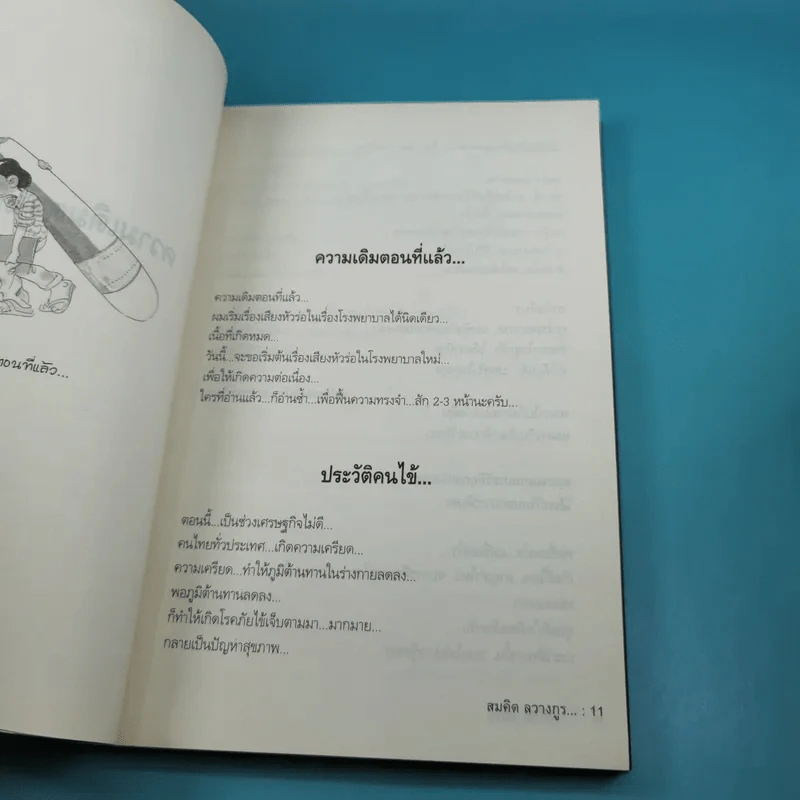 ตอนที่แล้ว...
ความเดิมตอนที่แล้ว...
ความเดิมตอนที่แล้ว...
ผมเริ่มเรื่องเสียงหัวร่อในเรื่องโรงพยาบาลได้นิดเดียว...
เนื้อที่เกิดหมด...
วันนี้...จะขอเริ่มต้นเรื่องเสียงหัวร่อในโรงพยาบาลใหม่...
เพื่อให้เกิดความต่อเนื่อง...
ใครที่อ่านแล้ว...ก็อ่านซ้ำ...เพื่อฟื้นความทรงจำ...สัก 2-3 หน้านะครับ...
ประวัติคนไข้...
ตอนนี้...เป็นช่วงเศรษฐกิจไม่ดี...
คนไทยทั่วประเทศ...เกิดความเครียด...
ความเครียด...ทำให้ภูมิต้านทานในร่างกายลดลง...
พอภูมิต้านทานลดลง...
ก็ทำให้เกิดโรคภัยไข้เจ็บตามมา...มากมาย...
กลายเป็นปัญหาสุขภาพ...
สมคิด ลวางกูร... : 11